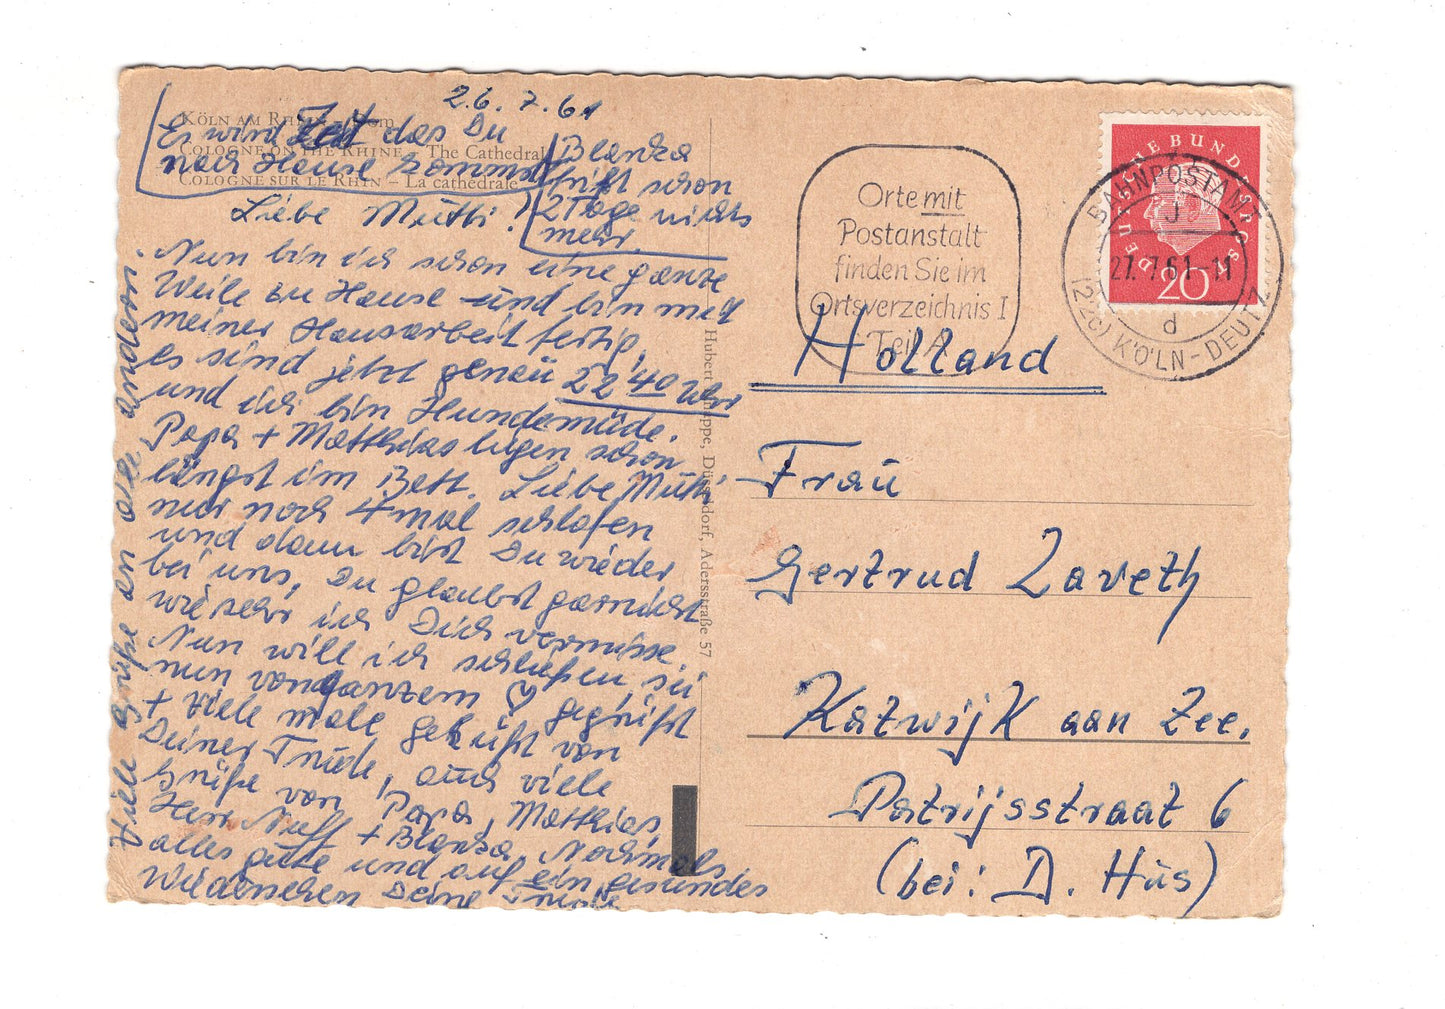 26. 7. 61
KÖLN AM RHEIN – Dom
COLOGNE ON THE RHINE – The Cathedral
COLOGNE SUR LE RHIN – La cathédrale
Es wird Zeit das Du
nach Hause kommst
Blanka
frißt schon
2 Tage nichts
mehr.
Liebe Mutti!
Nun bin ich schon eine ganze
Weile zu Hause und bin mit
meiner Hausarbeit fertig,
es sind jetzt genau 22 40 Uhr
und ich bin Hundemüde.
Papa + Matthias liegen schon
längst im Bett. Liebe Mutti
nur noch 4 mal schlafen
und dann bist Du wieder
bei uns. Du glaubst garnicht
wie sehr ich Dich vermisse.
Nun will ich schließen sei
nun von ganzem ♡ gegrüßt
+ viele male geküßt von
Deiner Trude, auch viele
Grüße von Papa, Matthias,
Herr Neff + Blanka. Nochmals
alles gute und auf ein gesundes
Wiedersehen Deine Trude
Viele Grüße an alle anderen.
Hubert Knoppe, Düsseldorf, Adersstraße 57
Orte mit
Postanstalt
finden Sie im
Ortsverzeichnis I
Teil A
DEUTSCHE BUNDESPOST
20
BAHNPOSTAMT
27. 7. 61 - 11
d
(22c) KÖLN-DEUTZ
Holland
Frau
Gertrud Zaveth
Katwijk aan Zee.
Patrijsstraat 6
(bei: D. Hüs)